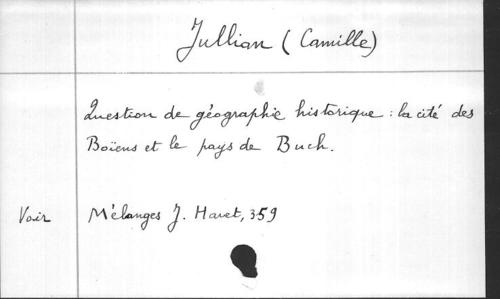 Jullian (Camille)
Question de géographie historique : la cité des
Boïens et le pays de Buch.
Voir Mélanges J. Havet, 359